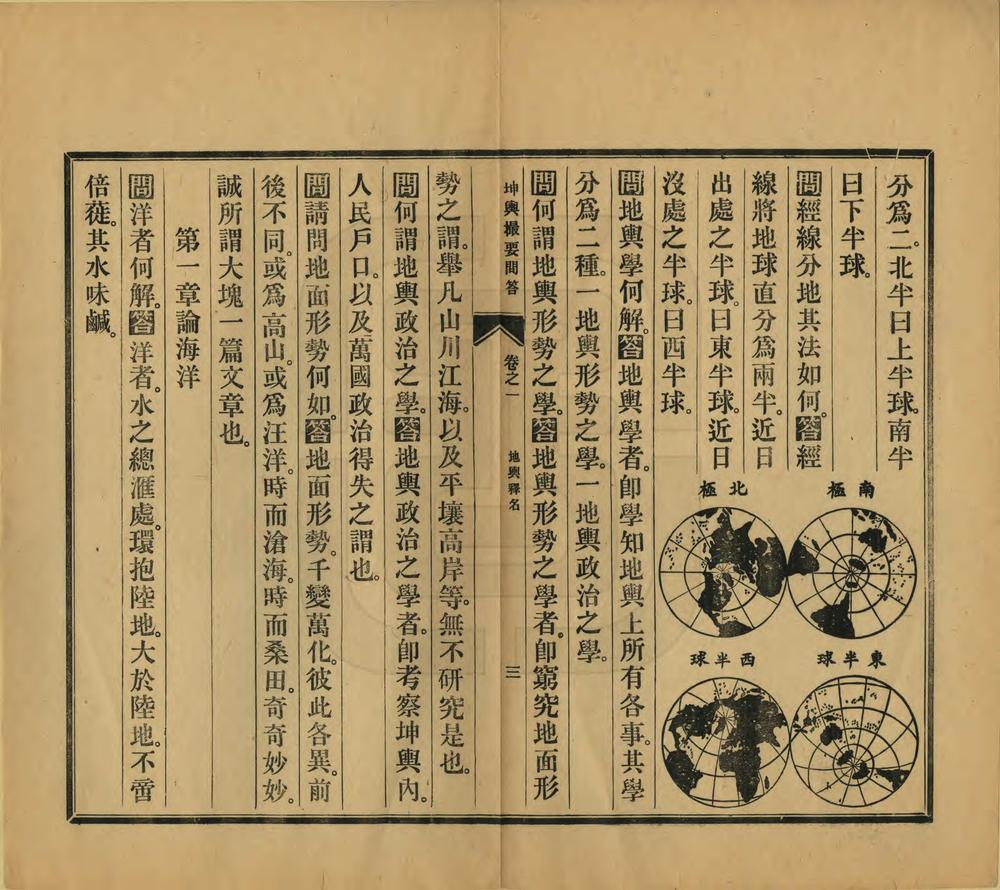 分爲二。北半曰上半球。南半
曰下半球。
問經線分地其法如何。答經
線將地球直分爲兩半。近日
出處之半球。曰東半球。近日
沒處之半球。曰西半球。
南極
北極
東半球
西半球
問地輿學何解。答地輿學者。卽學知地輿上所有各事。其學
分爲二種。一地輿形勢之學。一地輿政治之學。
問何謂地輿形勢之學。答地輿形勢之學者。卽窮究地面形
坤輿撮要問答 卷之一 地輿釋名 三
勢之謂。舉凡山川江海。以及平壤高岸等。無不研究是也。
問何謂地輿政治之學。答地輿政治之學者。卽考察坤輿內。
人民戶口。以及萬國政治得失之謂也。
問請問地面形勢何如。答地面形勢。千變萬化。彼此各異。前
後不同。或爲高山。或爲汪洋。時而滄海。時而桑田。奇奇妙妙。
誠所謂大塊一篇文章也。
第一章論海洋
問洋者何解。答洋者。水之總滙處。環抱陸地。大於陸地。不啻
倍蓰。其水味鹹。